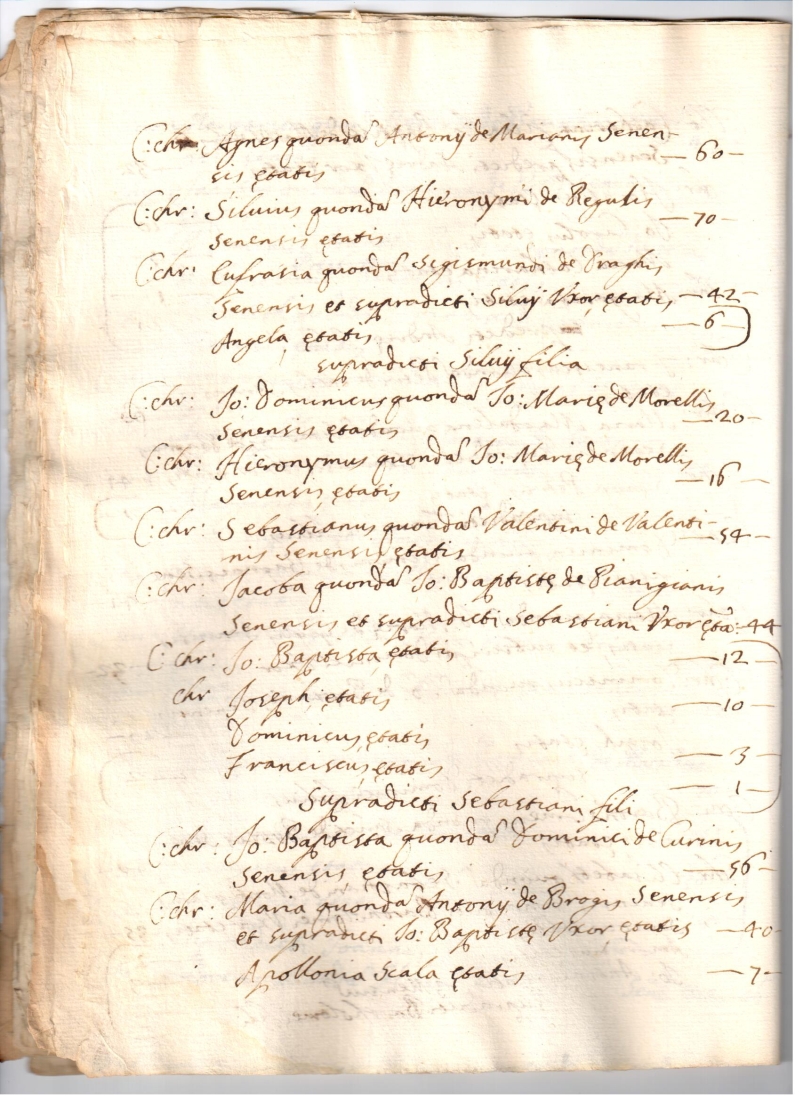 C: chr Agnes quondã Antonij de Marianis Senen-
sis ętatis — 60 —
C: chr: Siluius quondã Hieronymi de Regulis
Senensis ętatis — 70 —
C: chr: Eufrasia quondã Sigismundi de Draghis
Senensis et supradicti Siluij Vxor ętatis — 42 —
Angela ętatis — 6 —
supradicti Siluij filia
C: chr: Jo: Dominicus quondã Jo: Marię de Morellis
Senensis ętatis — 20 —
C: chr: Hieronymus quondã Jo: Marię de Morellis
Senensis ętatis — 16
C: chr: Sebastianus quondã Valentini de Valenti-
nis Senensis ętatis — 54 —
C: chr: Jacoba quondã Jo: Baptistę de Pianigianis
Senensis et supradicti Sebastiani Vxor ętã: 44
C: chr: Jo: Baptista ętatis — 12 —
chr Joseph ętatis — 10
Dominicus ętatis — 3
Franciscus ętatis — 1
Supradicti Sebastiani fili
C: chr: Jo: Baptista quondã Dominici de Curinis
Senensis ętatis — 56 —
C: chr: Maria quondã Antonij de Brogis Senensis
et supradicti Jo: Baptistę Vxor ętatis — 40 —
Apollonia Scala ętatis — 7 —